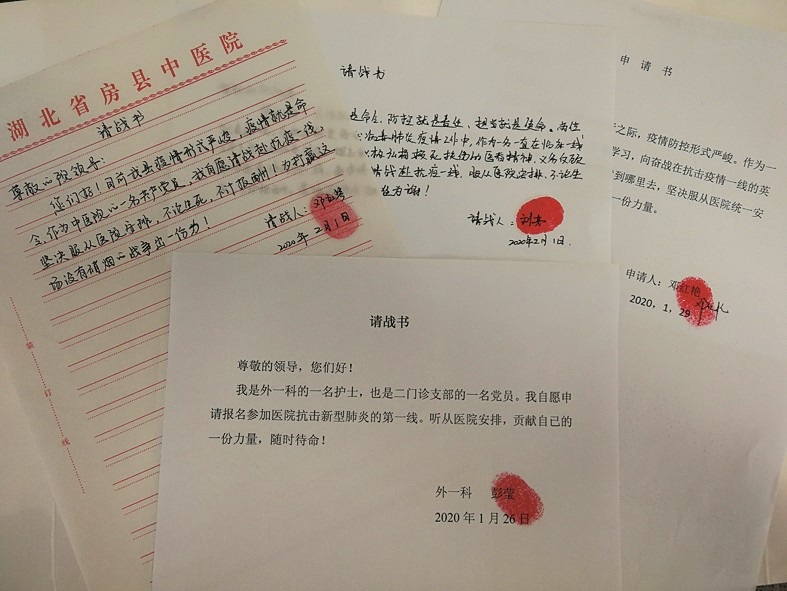 湖北省房县中医院
请战书
尊敬的院领导:
您们好!目前我县疫情形式严峻,疫情就是命
令,作为中医院的一名共产党员,我自愿请战赴抗疫一线,
坚决服从医院安排,不论生死,不计报酬!为打赢这
场没有硝烟的战争出一份力!
请战人:
2020年2月1日
装
订
线
请战书
是命令,防控就是责任,担当就是使命。
肺炎疫情工作中,作为一名一直在临床一线
精神,义不容辞
请战赴抗疫一线,服从医院安排,不论生
请战人:
2020年2月1日.
申请书
之际,疫情防控形式严峻。作为一
学习,向奋战在抗击疫情一线的英
到哪里去,坚决服从医院统一安
一份力量。
申请人:邓红艳
2020,1,29
请战书
尊敬的领导,您们好!
我是外一科的一名护士,也是二门诊支部的一名党员。我自愿申
请报名参加医院抗击新型肺炎的第一线。听从医院安排,贡献自己的
一份力量,随时待命!
外一科 彭莹
2020年1月26日